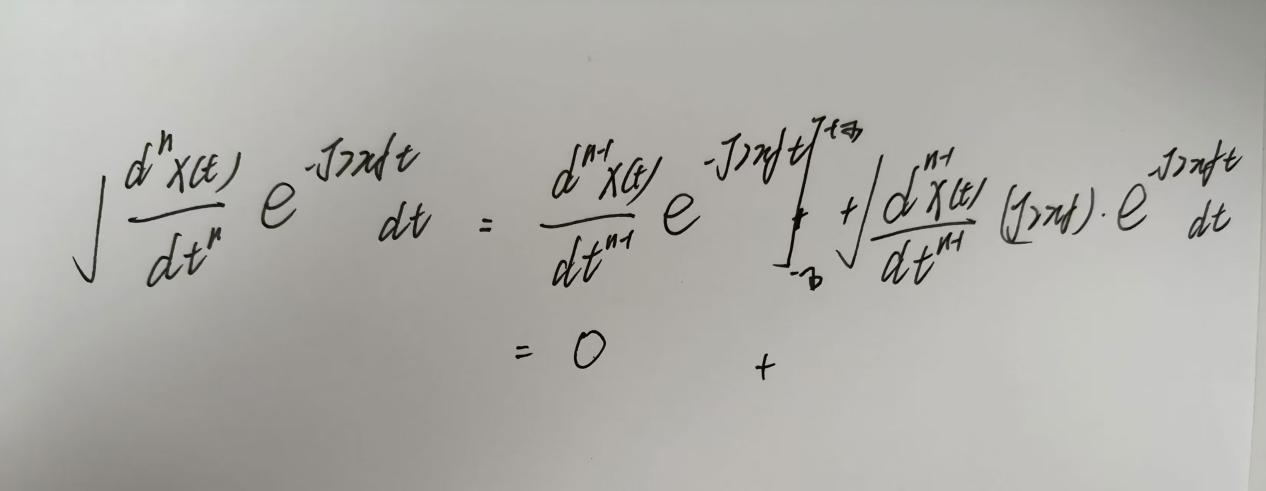 ∫ dⁿx(t)/dtⁿ e^(-j2πft) dt = dⁿ⁻¹x(t)/dtⁿ⁻¹ e^(-j2πft)]_(-∞)^(+∞) + ∫ dⁿ⁻¹x(t)/dtⁿ⁻¹ (j2πf)·e^(-j2πft) dt
= 0 +